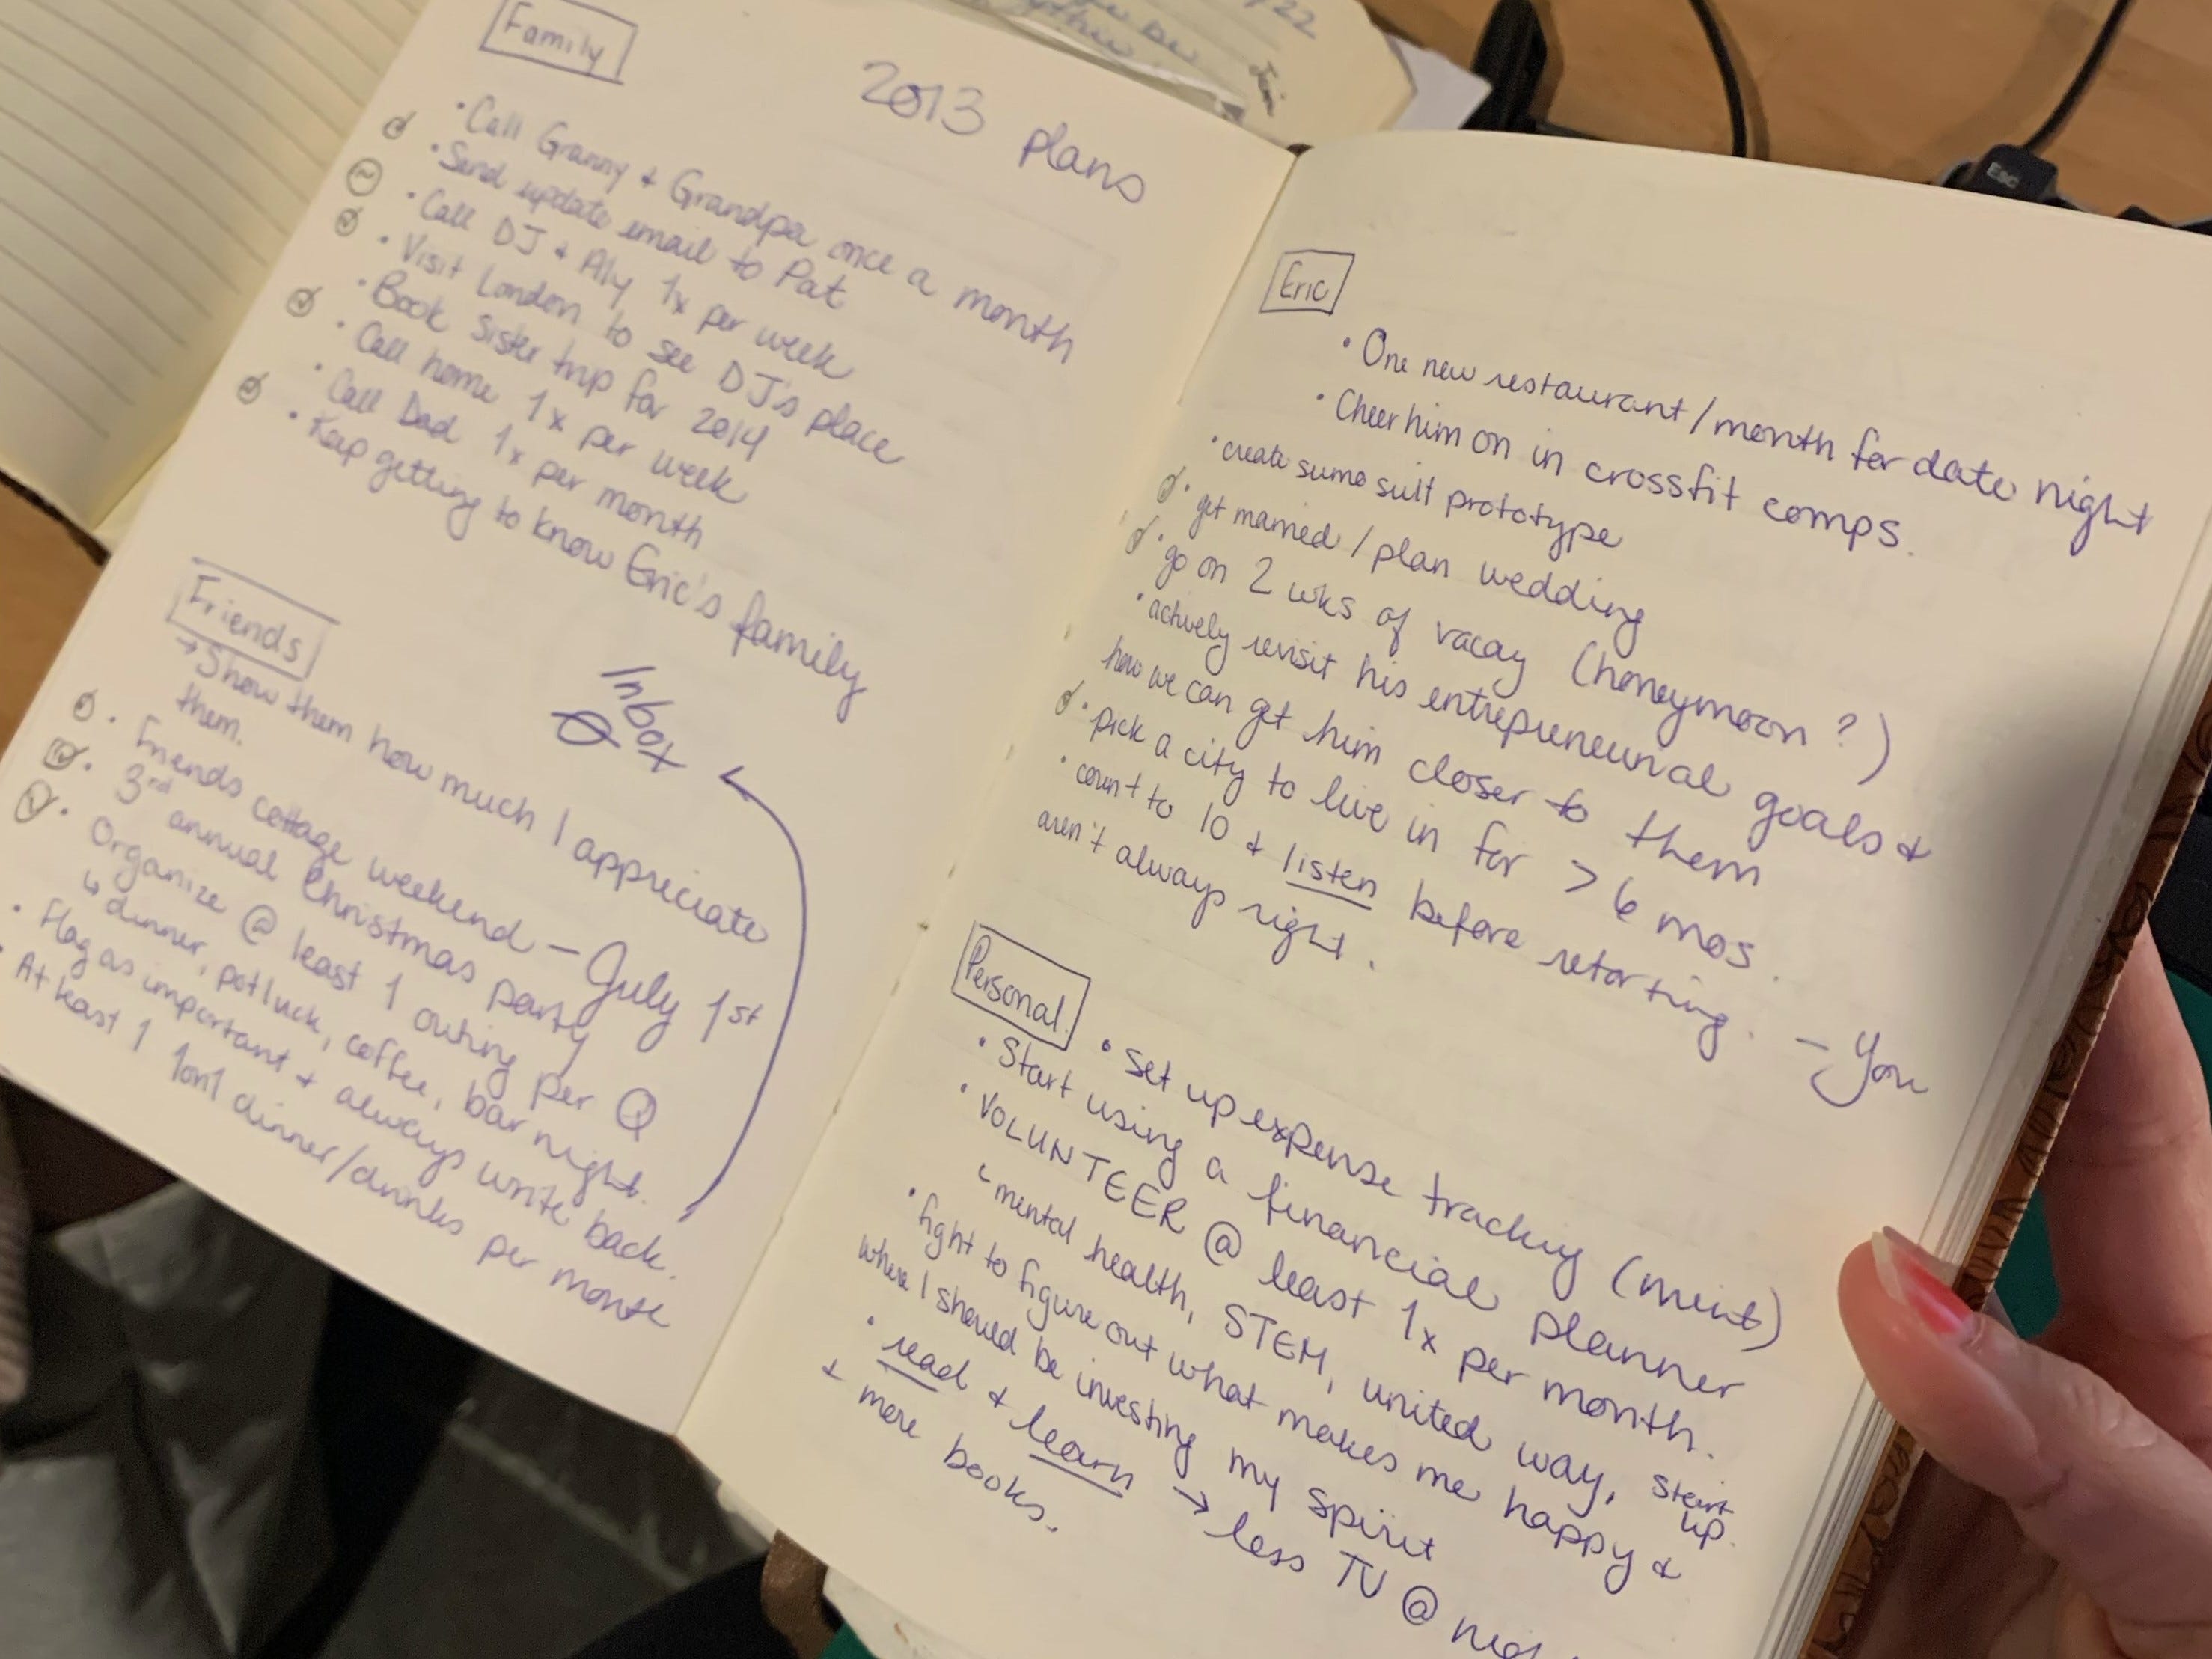 Family
2013 plans
• Call Granny + Grandpa once a month
• Send update email to Pat
• Call DJ + Aly 1x per week
• Visit London to see DJ's place
• Book Sister trip for 2014
• Call home 1x per week
• Call Dad 1x per month
• Keep getting to know Eric's family
Friends
→ Show them how much I appreciate
them.
• Friends cottage weekend - July 1st
• 3rd annual Christmas party
• Organize @ least 1 outing per Q
↳ dinner, potluck, coffee, bar night.
• Flag as important + always write back.
• At least 1 1on1 dinner/drinks per month
Inbox
Ø
Eric
• One new restaurant/month for date night
• Cheer him on in crossfit comps.
• create sumo suit prototype
• get married / plan wedding
• go on 2 wks of vacay (honeymoon?)
• actively revisit his entrepreneurial goals +
how we can get him closer to them
• pick a city to live in for > 6 mos.
• count to 10 + listen before retorting. - You
aren't always right.
Personal
• Set up expense tracking (mint)
• Start using a financial planner
• VOLUNTEER @ least 1x per month.
↳ mental health, STEM, united way, start
up.
• fight to figure out what makes me happy +
where I should be investing my spirit
• read + learn → less TV @
+ more books.
/22
Jain
Esc